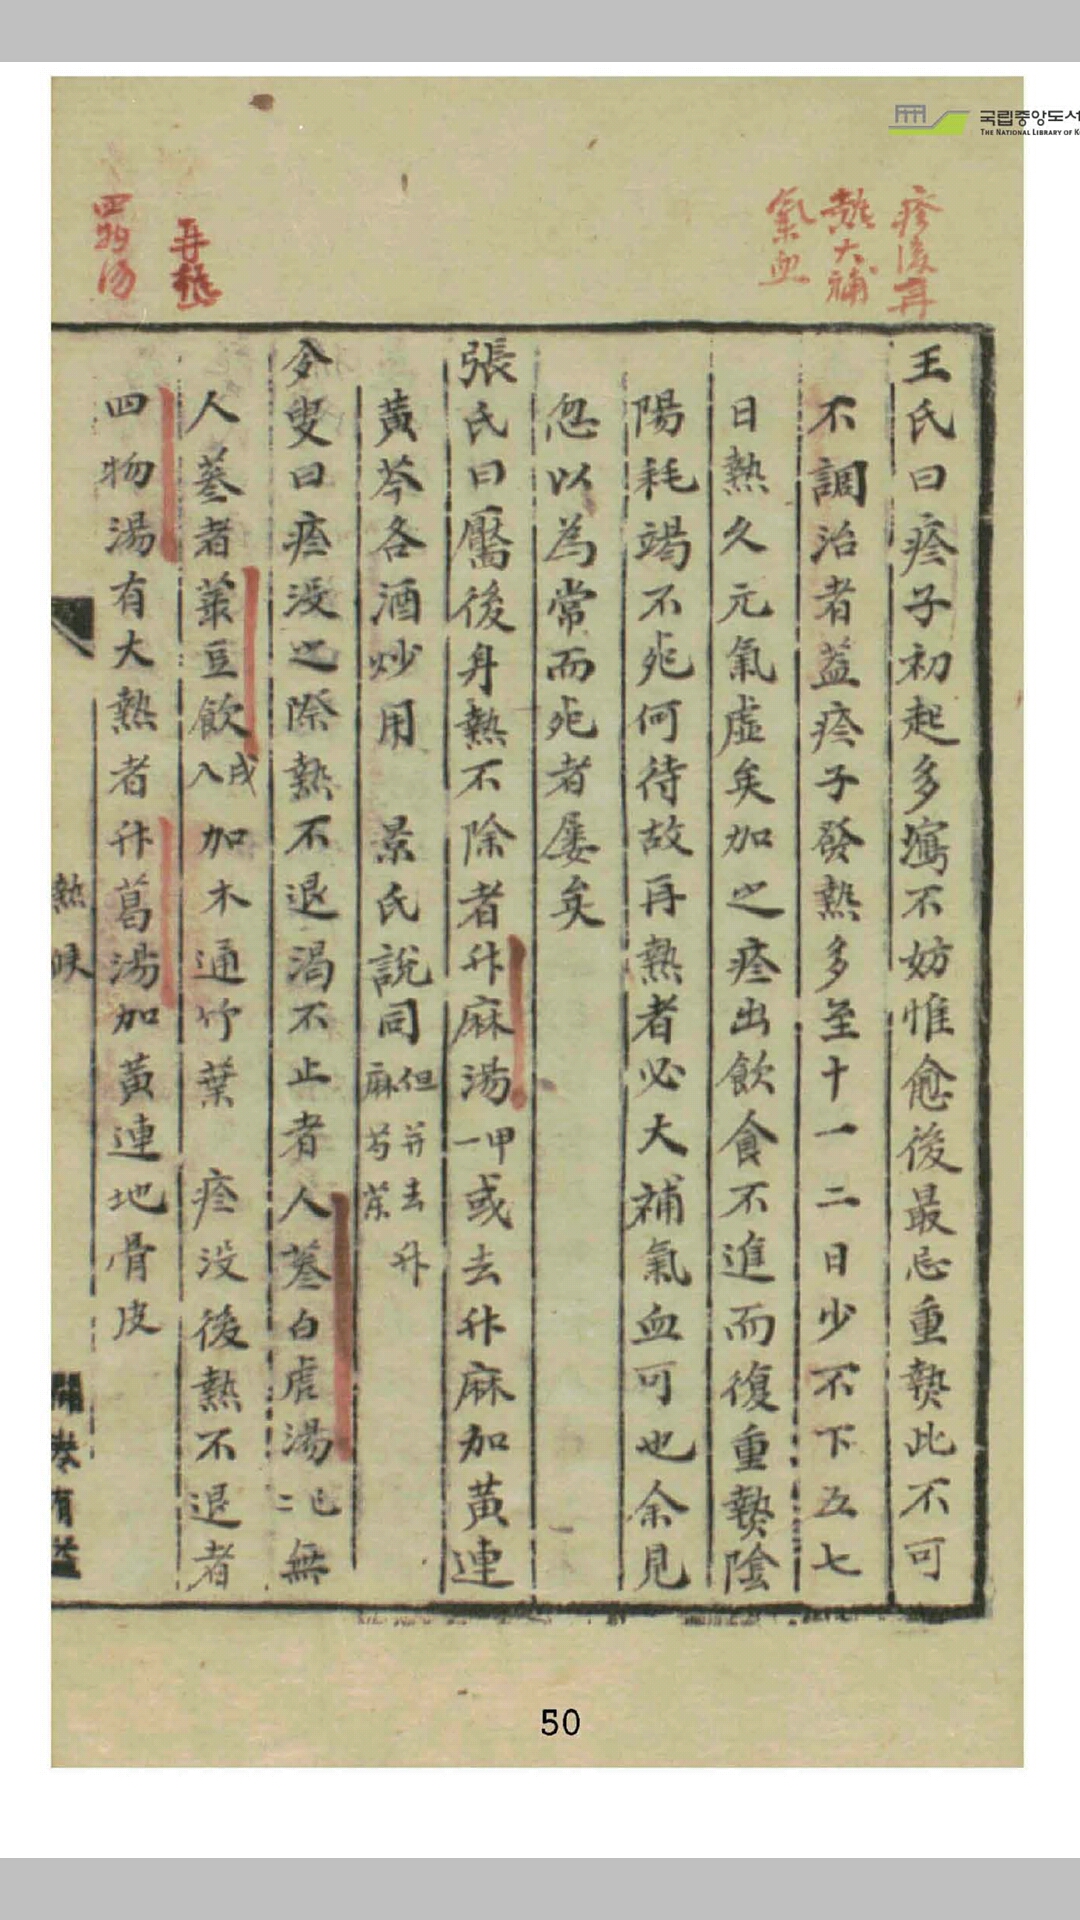 국립중앙도서
THE NATIONAL LIBRARY OF K
疹後再
熱大補
氣血
再熱
四物湯
王氏曰疹子初起多瀉不妨惟愈後最忌重熱此不可
不調治者盖疹子發熱多至十一二日少不下五七
日熱久元氣虛矣加之疹出飲食不進而復重熱陰
陽耗竭不死何待故再熱者必大補氣血可也余見
忽以為常而死者屡矣
張氏曰靨後身熱不除者升麻湯一甲或去升麻加黃連
黃芩各酒炒用 景氏說同但并去升麻芍茶
叟曰疹没之際熱不退渴不止者人蔘白虎湯二无
人蔘者菉豆飲入戌加木通竹葉 疹没後熱不退者
四物湯有大熱者升葛湯加黃連地骨皮
熱候
有益
50